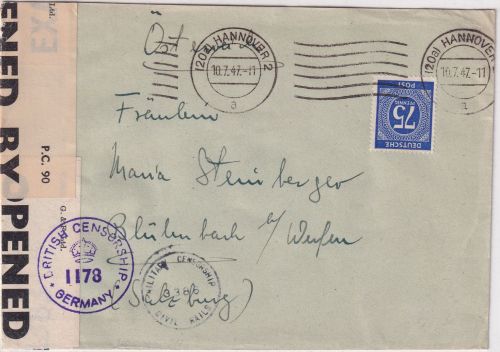 Österreich
(20a) HANNOVER 2
10.7.47.-11
a
(20a) HANNOVER
10.7.47.-11
a
DEUTSCHE
POST
75
PFENNIG
Fräulein
Maria Steinberger
Blühnbach b/ Werfen
(Salzburg)
P.C. 90
OPENED BY
OPENED
BRITISH CENSORSHIP
1173
GERMANY
MILITARY CENSORSHIP
CIVIL MAILS